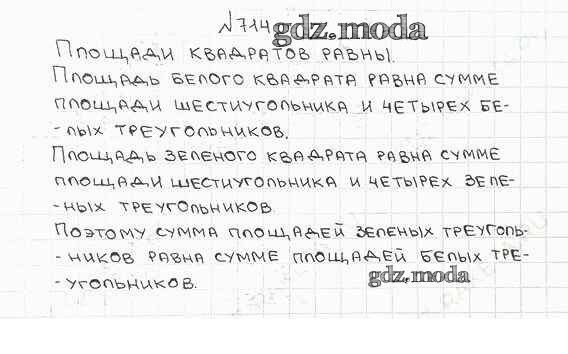 №714
gdz.moda
Площади квадратов равны.
Площадь белого квадрата равна сумме
площади шестиугольника и четырех бе-
-лых треугольников.
Площадь зеленого квадрата равна сумме
площади шестиугольника и четырех зеле-
-ных треугольников.
Поэтому сумма площадей зеленых треуголь-
-ников равна сумме площадей белых тре-
-угольников.
gdz.moda